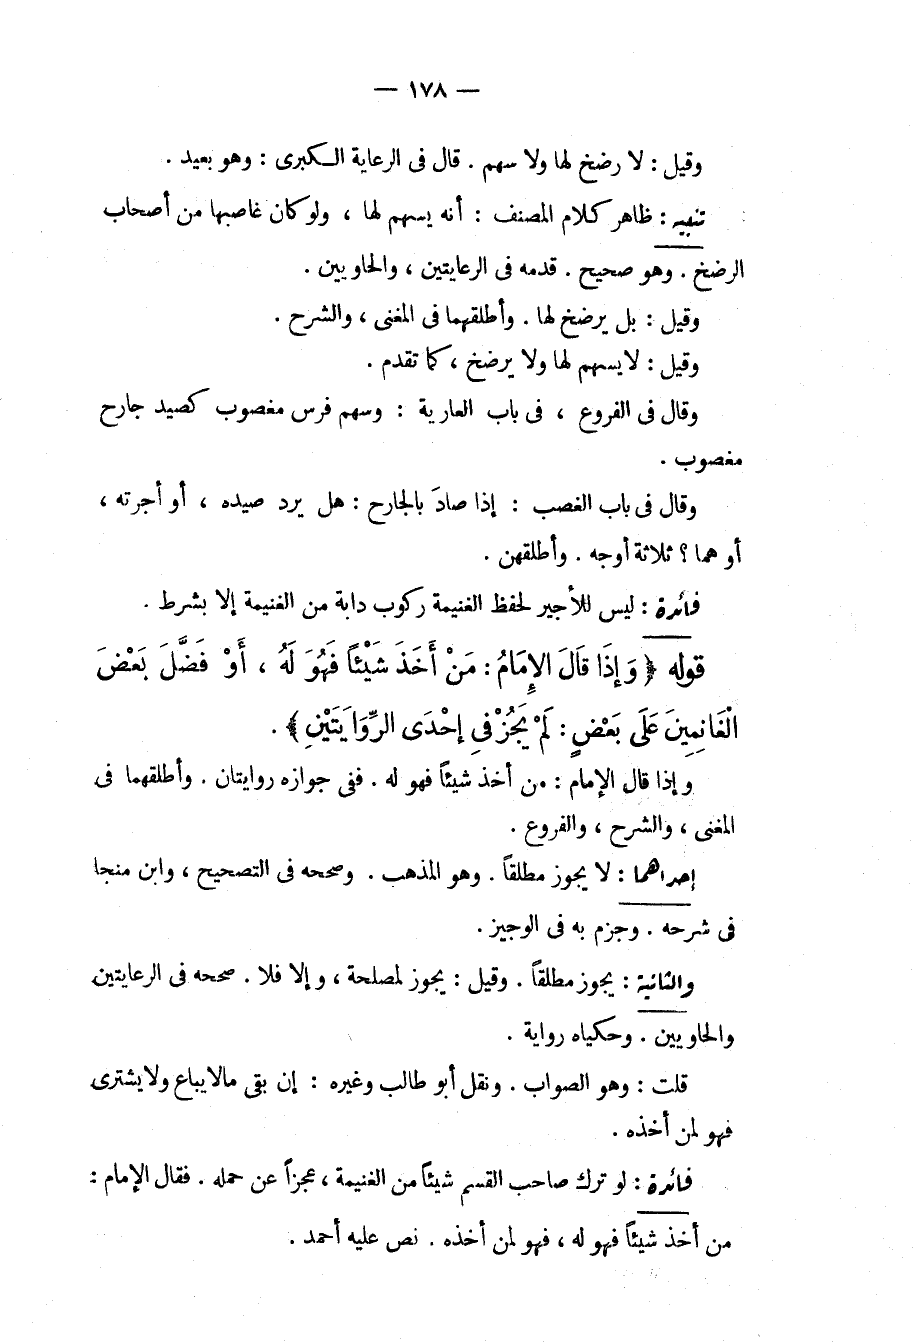 — ١٧٨ —
وقيل : لا رضخ لها ولا سهم . قال فى الرعاية الكبرى : وهو بعيد .
تنبيه : ظاهر كلام المصنف : أنه يسهم لها ، ولو كان غاصبها من أصحاب
الرضخ . وهو صحيح . قدمه فى الرعايتين ، والحاويين .
وقيل : بل يرضخ لها . وأطلقهما فى المغنى ، والشرح .
وقيل : لا يسهم لها ولا يرضخ ، كما تقدم .
وقال فى الفروع ، فى باب العارية : وسهم فرس مغصوب كصيد جارح
مغصوب .
وقال فى باب الغصب : إذا صادَ بالجارح : هل يرد صيده ، أو أجرته ،
أو هما ؟ ثلاثة أوجه . وأطلقهن .
فائدة : ليس للأجير لحفظ الغنيمة ركوب دابة من الغنيمة إلا بشرط .
قوله ﴿ وَإِذَا قَالَ الإِمَامُ : مَنْ أَخَذَ شَيْئاً فَهُوَ لَهُ ، أَوْ فَضَّلَ بَعْضَ
الْغَانِمِينَ عَلَى بَعْضٍ : لَمْ يَجُزْ فِي إِحْدَى الرِّوَايَتَيْنِ ﴾ .
وإذا قال الإمام : من أخذ شيئاً فهو له . ففى جوازه روايتان . وأطلقهما فى
المغنى ، والشرح ، والفروع .
إحداهما : لا يجوز مطلقاً . وهو المذهب . وصححه فى التصحيح ، وابن منجا
فى شرحه . وجزم به فى الوجيز .
والثانية : يجوز مطلقاً . وقيل : يجوز لمصلحة ، وإلا فلا . صححه فى الرعايتين
والحاويين . وحكياه رواية .
قلت : وهو الصواب . ونقل أبو طالب وغيره : إن بقى مالا يباع ولا يشترى
فهو لمن أخذه .
فائدة : لو ترك صاحب القسم شيئاً من الغنيمة ، عجزاً عن حمله . فقال الإمام :
من أخذ شيئاً فهو له ، فهو لمن أخذه . نص عليه أحمد .